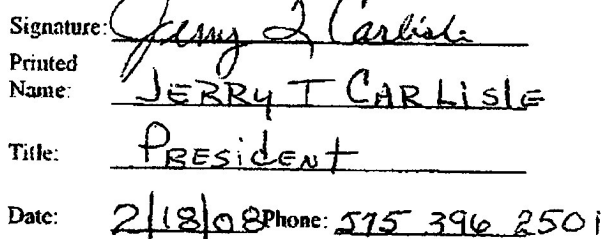 Signature: Jerry T Carlisle
Printed
Name: JERRY T CARLISLE
Title: PRESIDENT
Date: 2/18/08 Phone: 575 396 2501